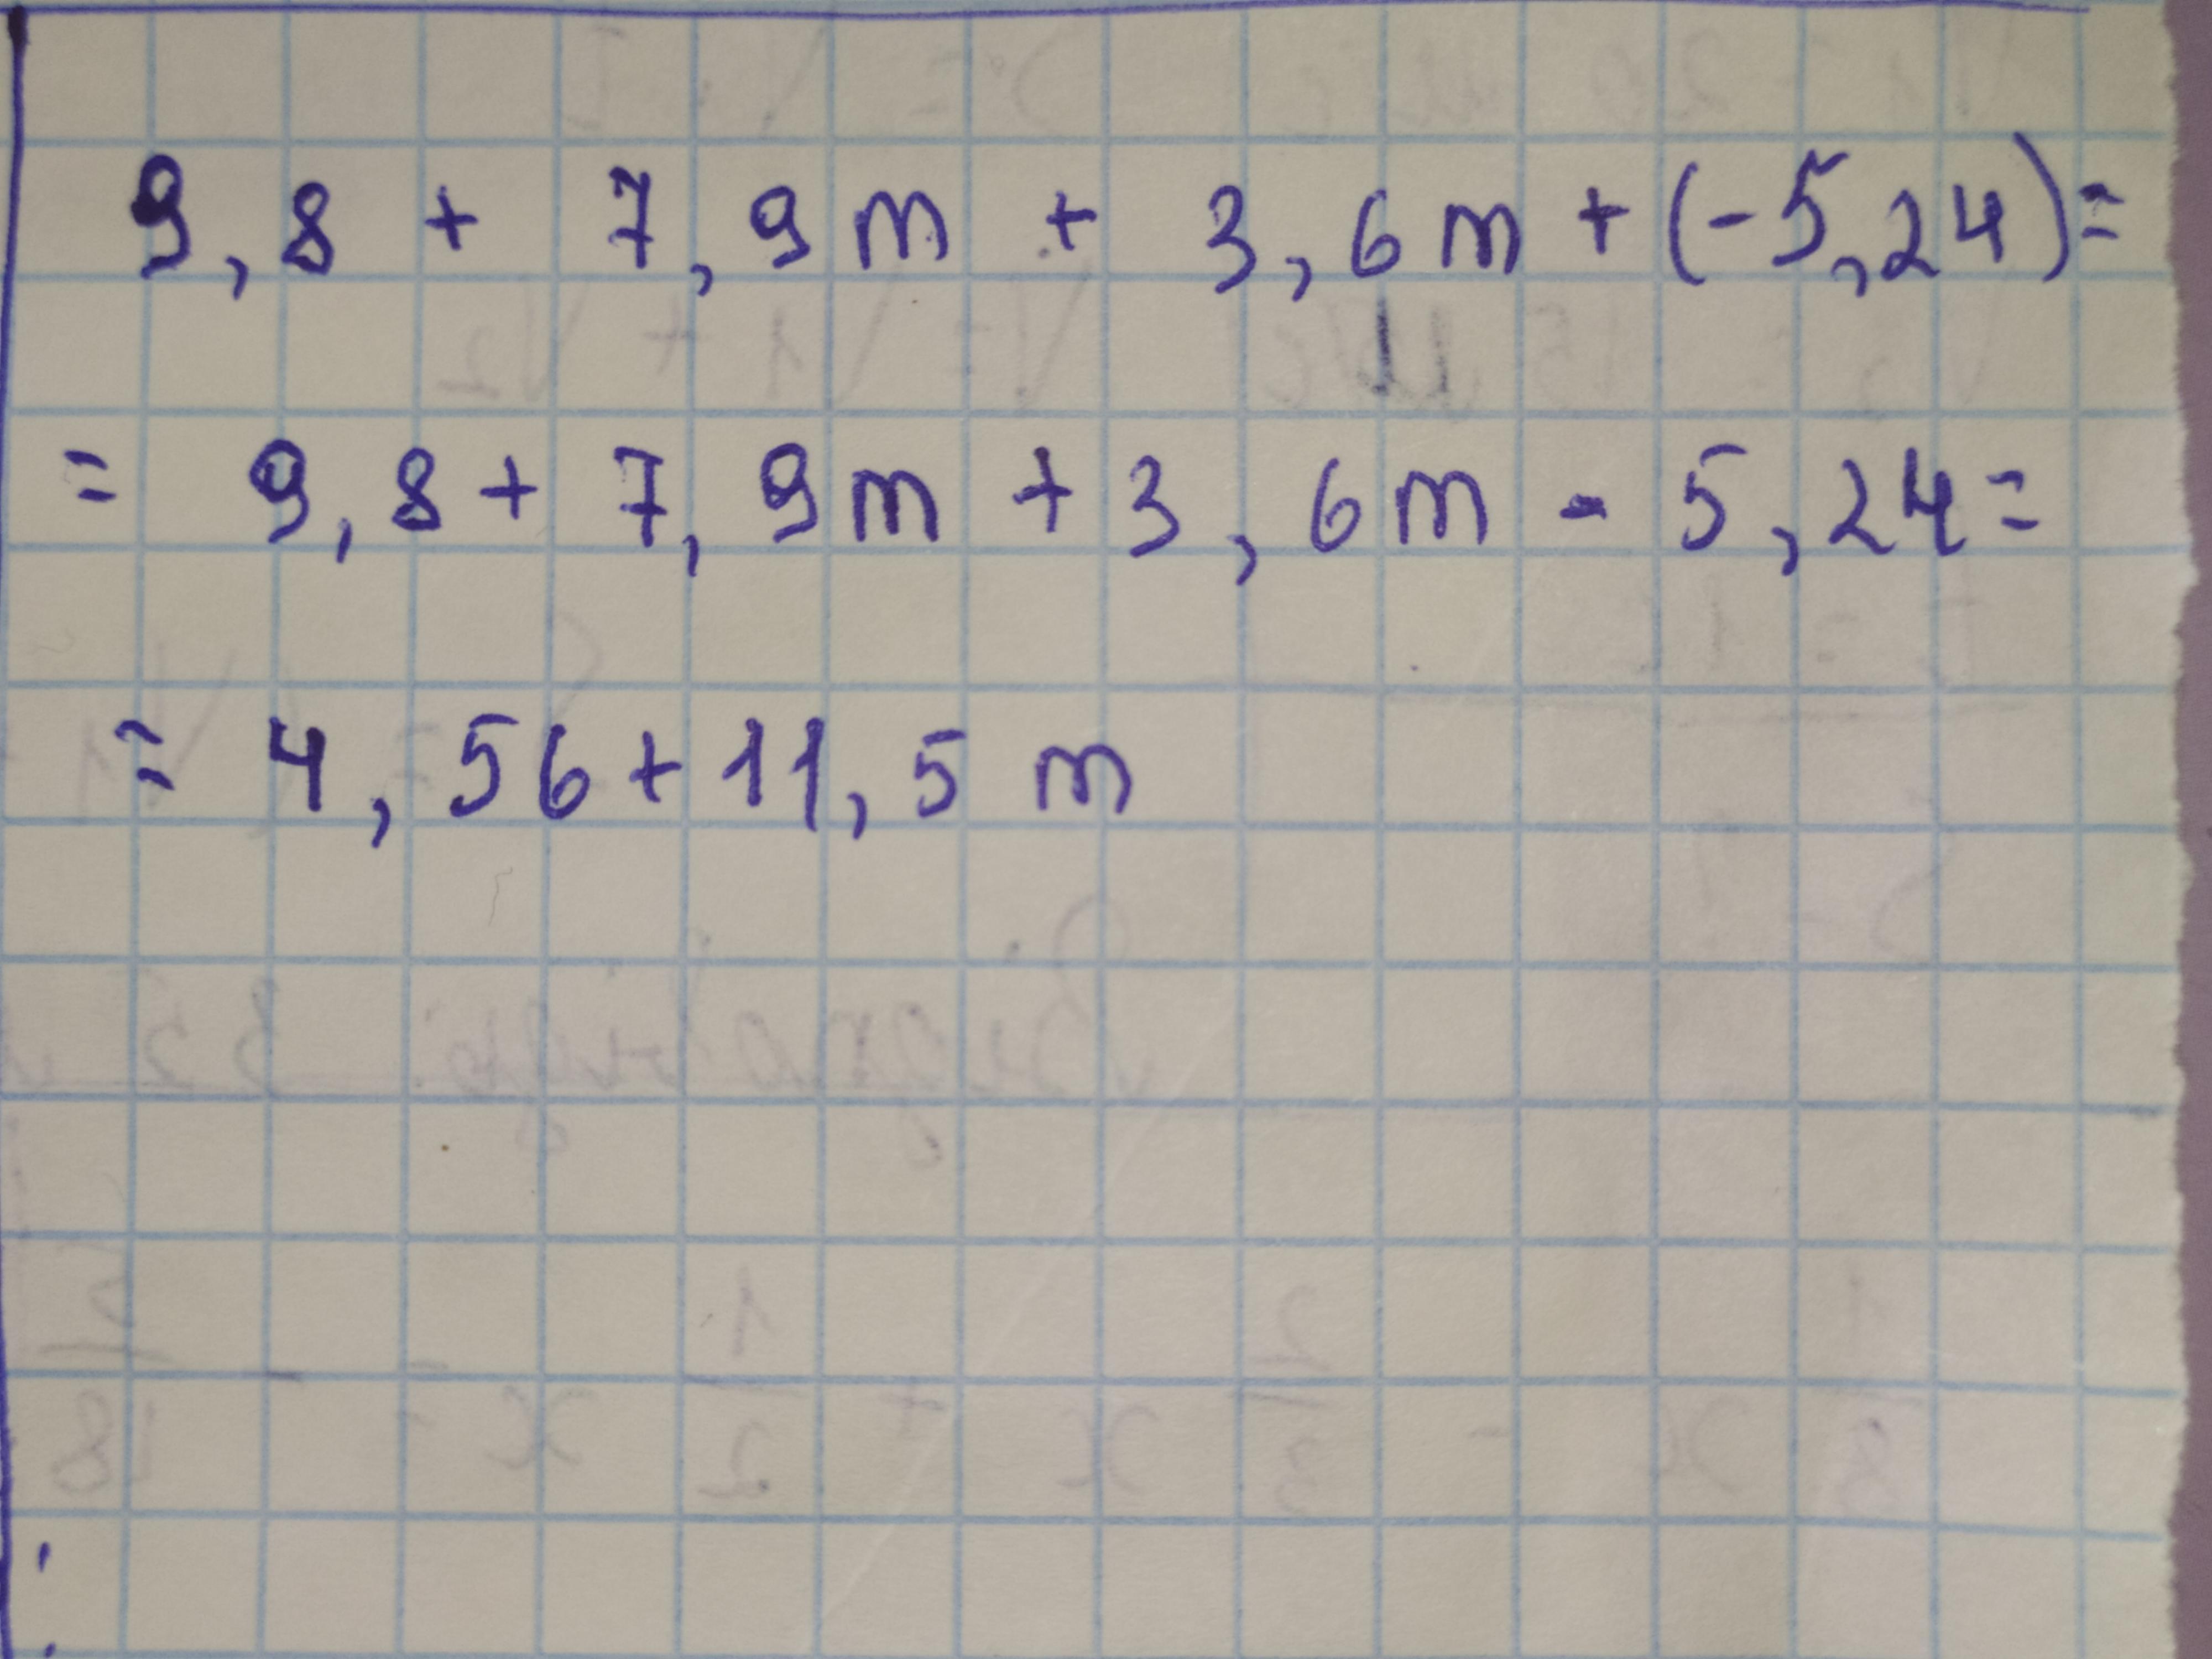 9,8 + 7,9m + 3,6m + (-5,24) =
= 9,8 + 7,9m + 3,6m - 5,24 =
= 4,56 + 11,5 m